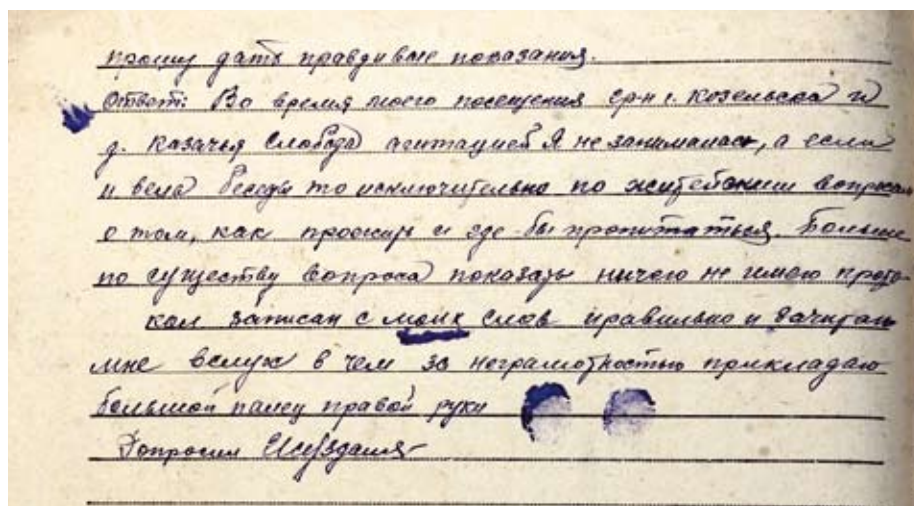 прошу дать правдивые показания.
Ответ: Во время моего посещения ср-н г. Козельска и
д. Казачья Слобода агитацией Я не занималась, а если
и вела беседы то исключительно по житейским вопросам
о том, как прожить и где-бы пропитаться. Больше
по существу вопроса показать ничего не имею прото-
кол записан с моих слов правильно и зачитан
мне вслух в чем за неграмотностью прикладаю
большой палец правой руки
Допросил